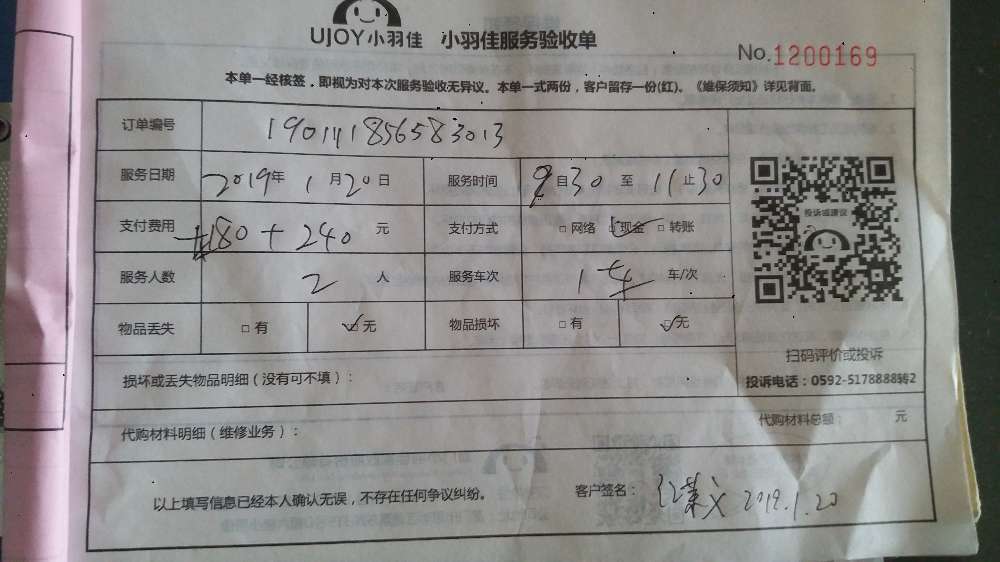 UJOY小羽佳 小羽佳服务验收单
No.1200169
本单一经核签，即视为对本次服务验收无异议。本单一式两份，客户留存一份(红)。《维保须知》详见背面。
订单编号 1901141856583013
服务日期 2019年 1月20日 服务时间 9自30 至 11止30
支付费用 180+240 元 支付方式 □网络 ☑现金 □转账
投诉或建议
服务人数 2 人 服务车次 1车 车/次
物品丢失 □有 ☑无 物品损坏 □有 ☑无
扫码评价或投诉
损坏或丢失物品明细（没有可不填）：
投诉电话：0592-5178888转2
代购材料明细（维修业务）： 代购材料总额： 元
以上填写信息已经本人确认无误，不存在任何争议纠纷。 客户签名： 2019.1.20